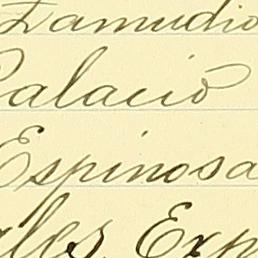 Zamudio
Palacio
Espinosa
ales Exp